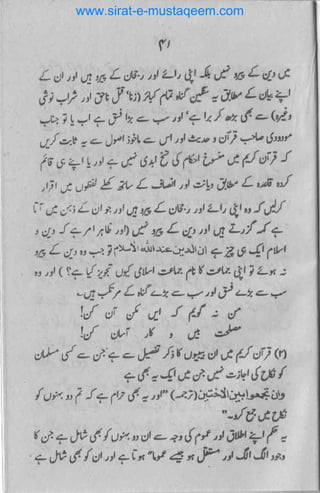 www.sirat-e-mustaqeem.com
۴۱
میں دین کے پیرو نہیں بلکہ اپنی رائے اور رجحان کے پیرو ہیں اور ان کے
اپنے بیان کے مطابق یہ سنگین گناہ تمام کبائر (زنا، قتل ناحق اور شراب نوشی
وغیرہ) سے بھی بڑھ کر برا ہے، اور سب سے بڑا فسق ہے اب یا تو جناب
مودودی صاحب قرآن و حدیث اور اس سے ماخوذ اصول سے یہ ثابت کریں
کہ قرآن کریم میں منسوخ احکام کی آیتیں نہیں ہے اور یا اپنے ہی قائم
کردہ قاعدہ کے مطابق دیانت اور انصاف کے ساتھ کھلے لفظوں میں اقرار
کرلیں کہ وہ اپنی رائے اور رجحان کے پیرو ہیں اور جو ان کے ذہن میں آتا
ہے کہہ گزرتے ہیں اور دین کے پیرو نہیں (اور ظاہر امر ہے کہ دین و
اسلام ایک ہی چیز ہے ان الدین عند الله الاسلام تو جب وہ دین کے پیرو
نہ ہوئے تو اپنی جماعت کا نام جماعت اسلامی کیوں تجویز کیا ہے؟) اور وہ
سب سے بڑے فسق اور سب سے بڑے گناہ کے مرتکب ہیں۔
من نہ گویم کہ ایں کن آں کن!
مصلحت بیں و کار آساں کن!
(۲) قرآن کریم میں ان بیبیوں کا ذکر تفصیل سے ہے جن سے کسی مسلمان
کو نکاح کی اجازت نہیں جن میں ایک یہ بھی ہے
وان تجمعوا بین الاختین (ترجمہ) "اور یہ بھی حرام ہے کہ تم دو بہنوں کو
نکاح میں جمع کرو۔"
یہ حکم اپنے اطلاق اور عموم کی وجہ سے ان دو بہنوں کو بھی شامل ہے جن کا
وجود الگ الگ اور مستقل ہو جیسے عموماً ہوتا ہے اور ان کو بھی شامل ہے